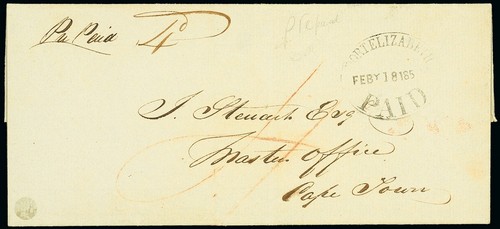 Pre Paid
4d
Prepaid
PORT ELIZABETH
FEBY 18 185
PAID
J. Steuart Esq
Master Office
Cape Town